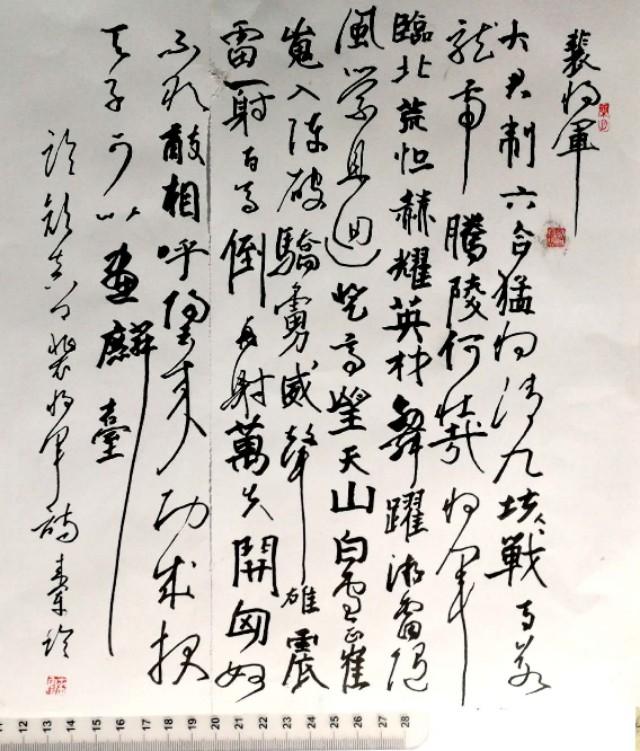 裴将軍
大君制六合猛将清九垓戰馬若
龍虎騰陵何壯哉将軍
臨北荒烜赫耀英材舞躍游雷随
風縈且迴登高望天山白雲正崔
嵬入陣破驕虜威聲雄震
雷一射百馬倒再射萬夫開匈奴
不敢敵相呼歸来功成报
天子可以畫麟臺
临颜真卿裴将軍詩
11 12 13 14 15 16 17 18 19 20 21 22 23 24 25 26 27 28